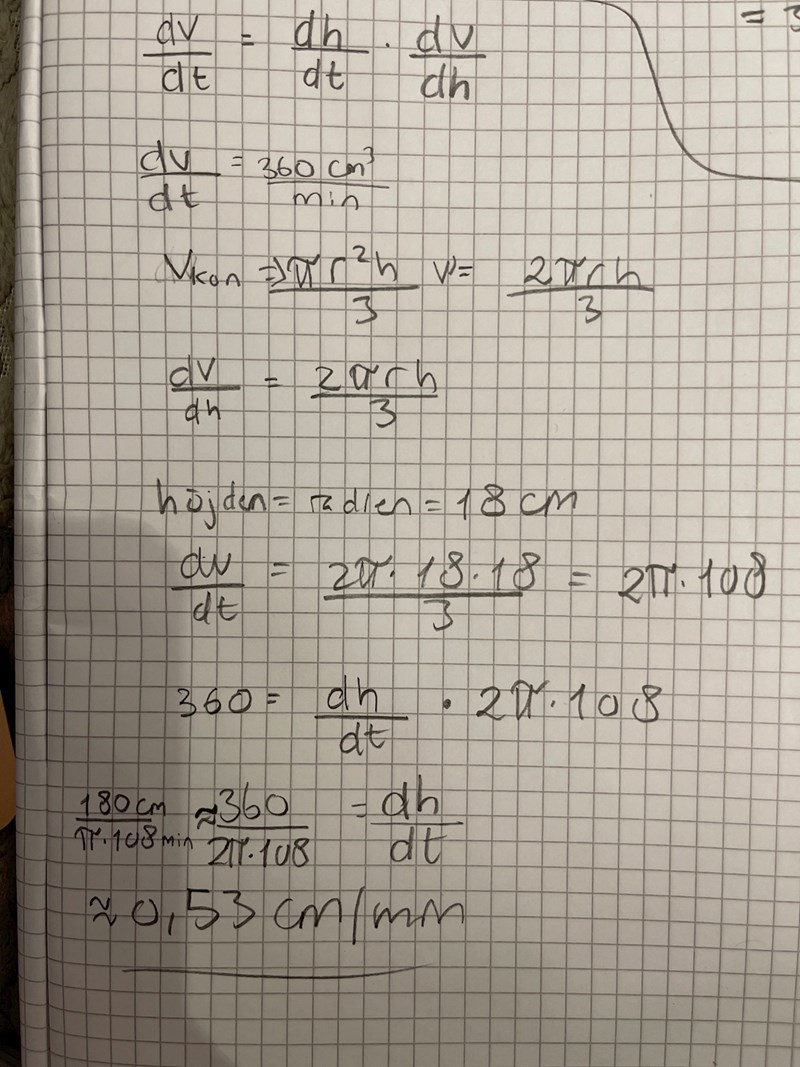 = 3
dv/dt = dh/dt · dv/dh
dv/dt = 360 cm³/min
Vkon ⇒ πr²h/3 V' = 2πrh/3
dv/dh = 2πrh/3
höjden = radien = 18 cm
dv/dt = 2π·18·18/3 = 2π·108
360 = dh/dt · 2π·108
180 cm/π·108 min ≈ 360/2π·108 = dh/dt
≈ 0,53 cm/min